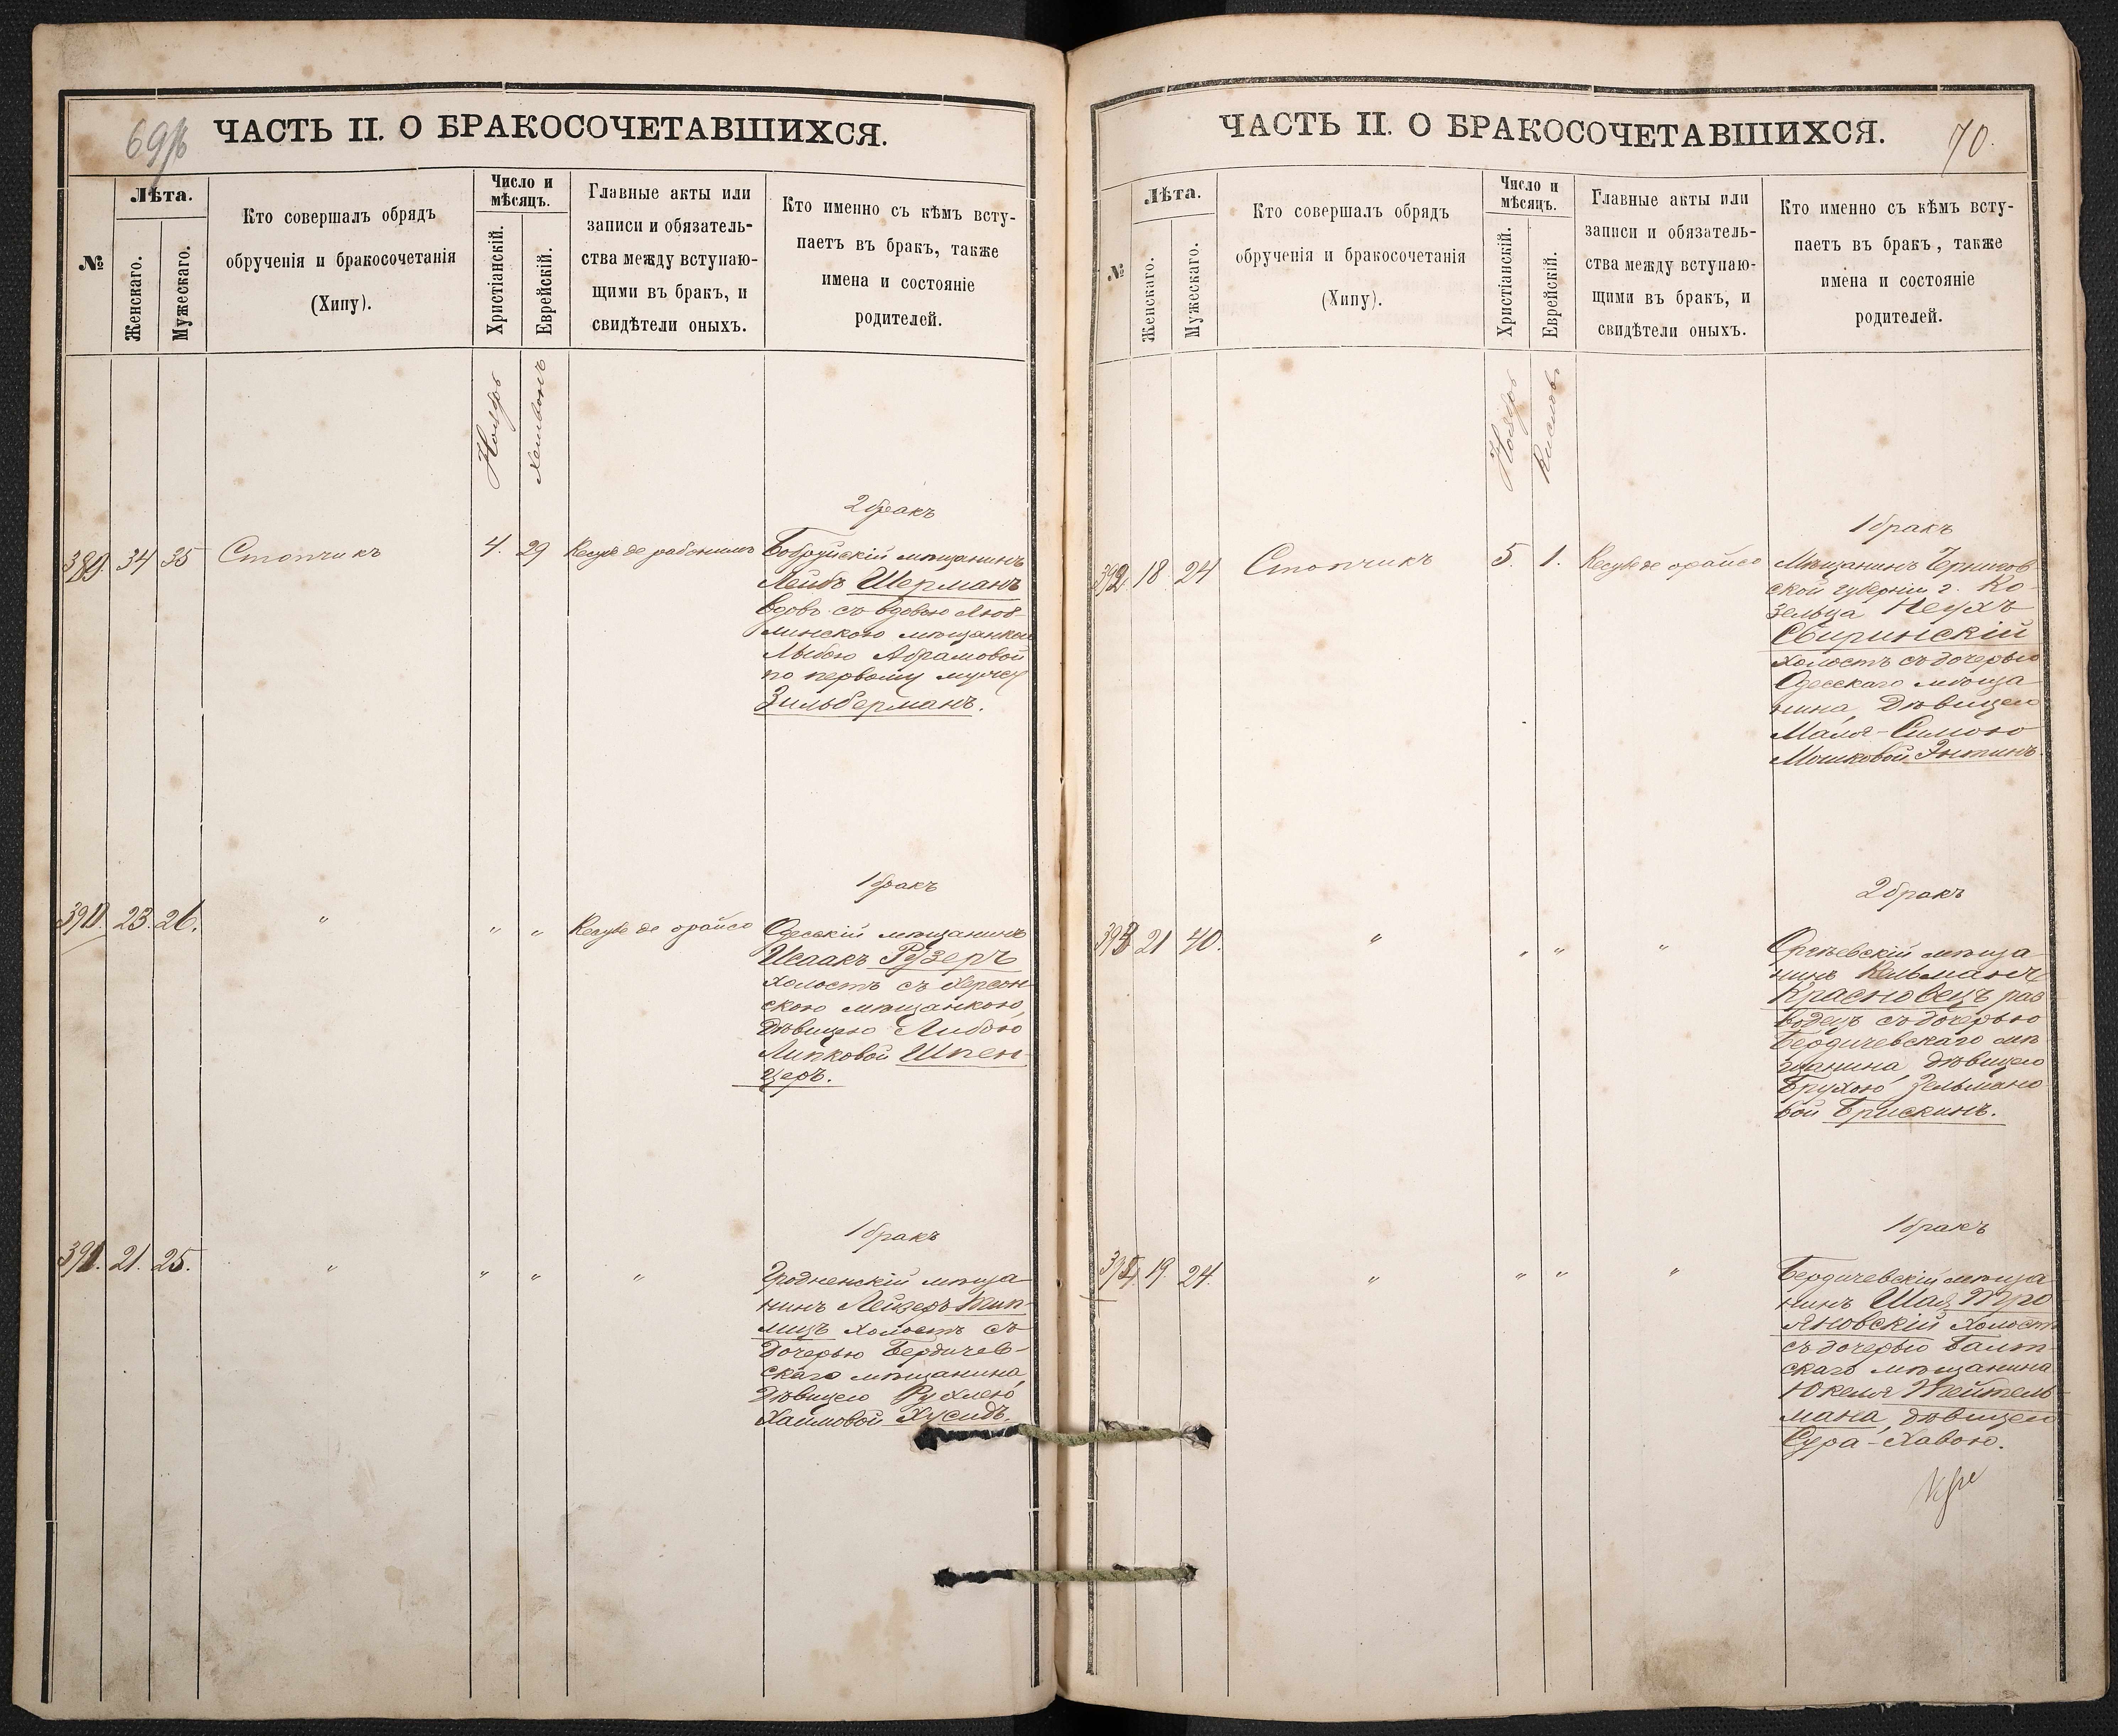 69/б
ЧАСТЬ II. О БРАКОСОЧЕТАВШИХСЯ.
№
Лѣта.
Женскаго.
Мужескаго.
Кто совершалъ обрядъ
обрученія и бракосочетанія
(Хипу).
Число и
мѣсяцъ.
Христіанскій.
Еврейскій.
Главные акты или
записи и обязатель-
ства между вступаю-
щими въ бракъ, и
свидѣтели оныхъ.
Кто именно съ кѣмъ всту-
паетъ въ бракъ, также
имена и состояніе
родителей.
Ноябрь
Хешвонъ
2 бракъ
389. 34 35 Стопчикъ 4. 29 Бобруйскій мѣщанинъ
Лейбъ Шерманъ
вдовъ съ вдовою Люб-
линскою мѣщанкою
Абрамовой
по первому мужу
Зильберманъ.
1 бракъ
390. 23. 26. " " " Кесубе де орайсо Одесскій мѣщанинъ
Исаакъ Рузеръ
холостъ съ Херсон-
скою мѣщанкою,
дѣвицею Либою
Липковой Шпен-
церъ.
1 бракъ
391. 21. 25. " " " " Гродненскій мѣща-
нинъ Лейзеръ
холостъ съ
дочерью Бердичев-
скаго мѣщанина,
дѣвицею Рухлею
Хаимовой Хусидъ.
70.
ЧАСТЬ II. О БРАКОСОЧЕТАВШИХСЯ.
№
Лѣта.
Женскаго.
Мужескаго.
Кто совершалъ обрядъ
обрученія и бракосочетанія
(Хипу).
Число и
мѣсяцъ.
Христіанскій.
Еврейскій.
Главные акты или
записи и обязатель-
ства между вступаю-
щими въ бракъ, и
свидѣтели оныхъ.
Кто именно съ кѣмъ всту-
паетъ въ бракъ, также
имена и состояніе
родителей.
Ноябрь
Кислевъ
1 бракъ
392. 18. 24 Стопчикъ 5. 1. Кесубе де орайсо Мѣщанинъ Чернигов-
ской губерніи г. Ко-
зельца Неухъ
Свиринскій
холостъ съ дочерью
Одесскаго мѣща-
нина, дѣвицею
Маля-Симою
Мошковой Энтинъ.
2 бракъ
393 21 40. " " " " Оргѣевскій мѣща-
нинъ Кельманъ
Красновецъ раз-
водецъ съ дочерью
Бердичевскаго мѣ-
щанина, дѣвицею
Брухою Зельмано-
вой Брискинъ.
1 бракъ
394. 19. 24. " " " " Бердичевскій мѣща-
нинъ Тро-
яновскій холостъ
съ дочерью Балт-
скаго мѣщанина
Юкеля Жейтель-
мана, дѣвицею
Сура-Хавою.